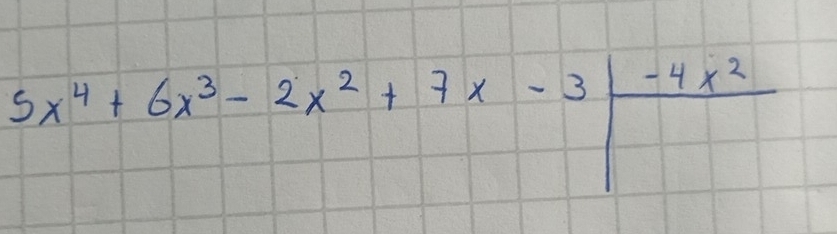 5x⁴ + 6x³ - 2x² + 7x - 3 | -4x²